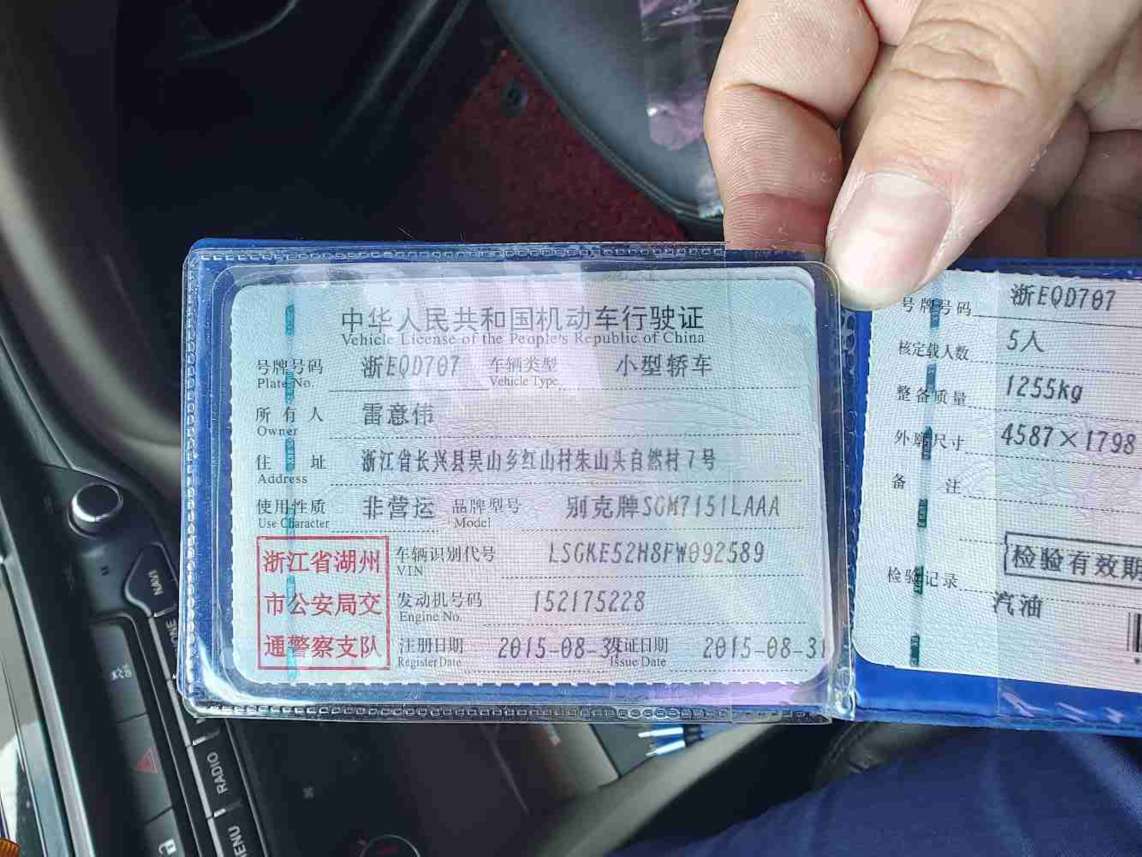 中华人民共和国机动车行驶证
Vehicle License of the People's Republic of China
号牌号码 浙EQD707 车辆类型 小型轿车
Plate No. Vehicle Type
所有人 雷意伟
Owner
住址 浙江省长兴县吴山乡红山村朱山头自然村7号
Address
使用性质 非营运 品牌型号 别克牌SGM7151LAAA
Use Character Model
浙江省湖州
市公安局交
通警察支队
车辆识别代号 LSGKE52H8FW092589
VIN
发动机号码 152175228
Engine No.
注册日期 2015-08-31 发证日期 2015-08-31
Register Date Issue Date
号牌号码 浙EQD707
核定载人数 5人
整备质量 1255kg
外廓尺寸 4587×1798
备注
检验有效期
检验记录
汽油
NAVI
RADIO
MENU